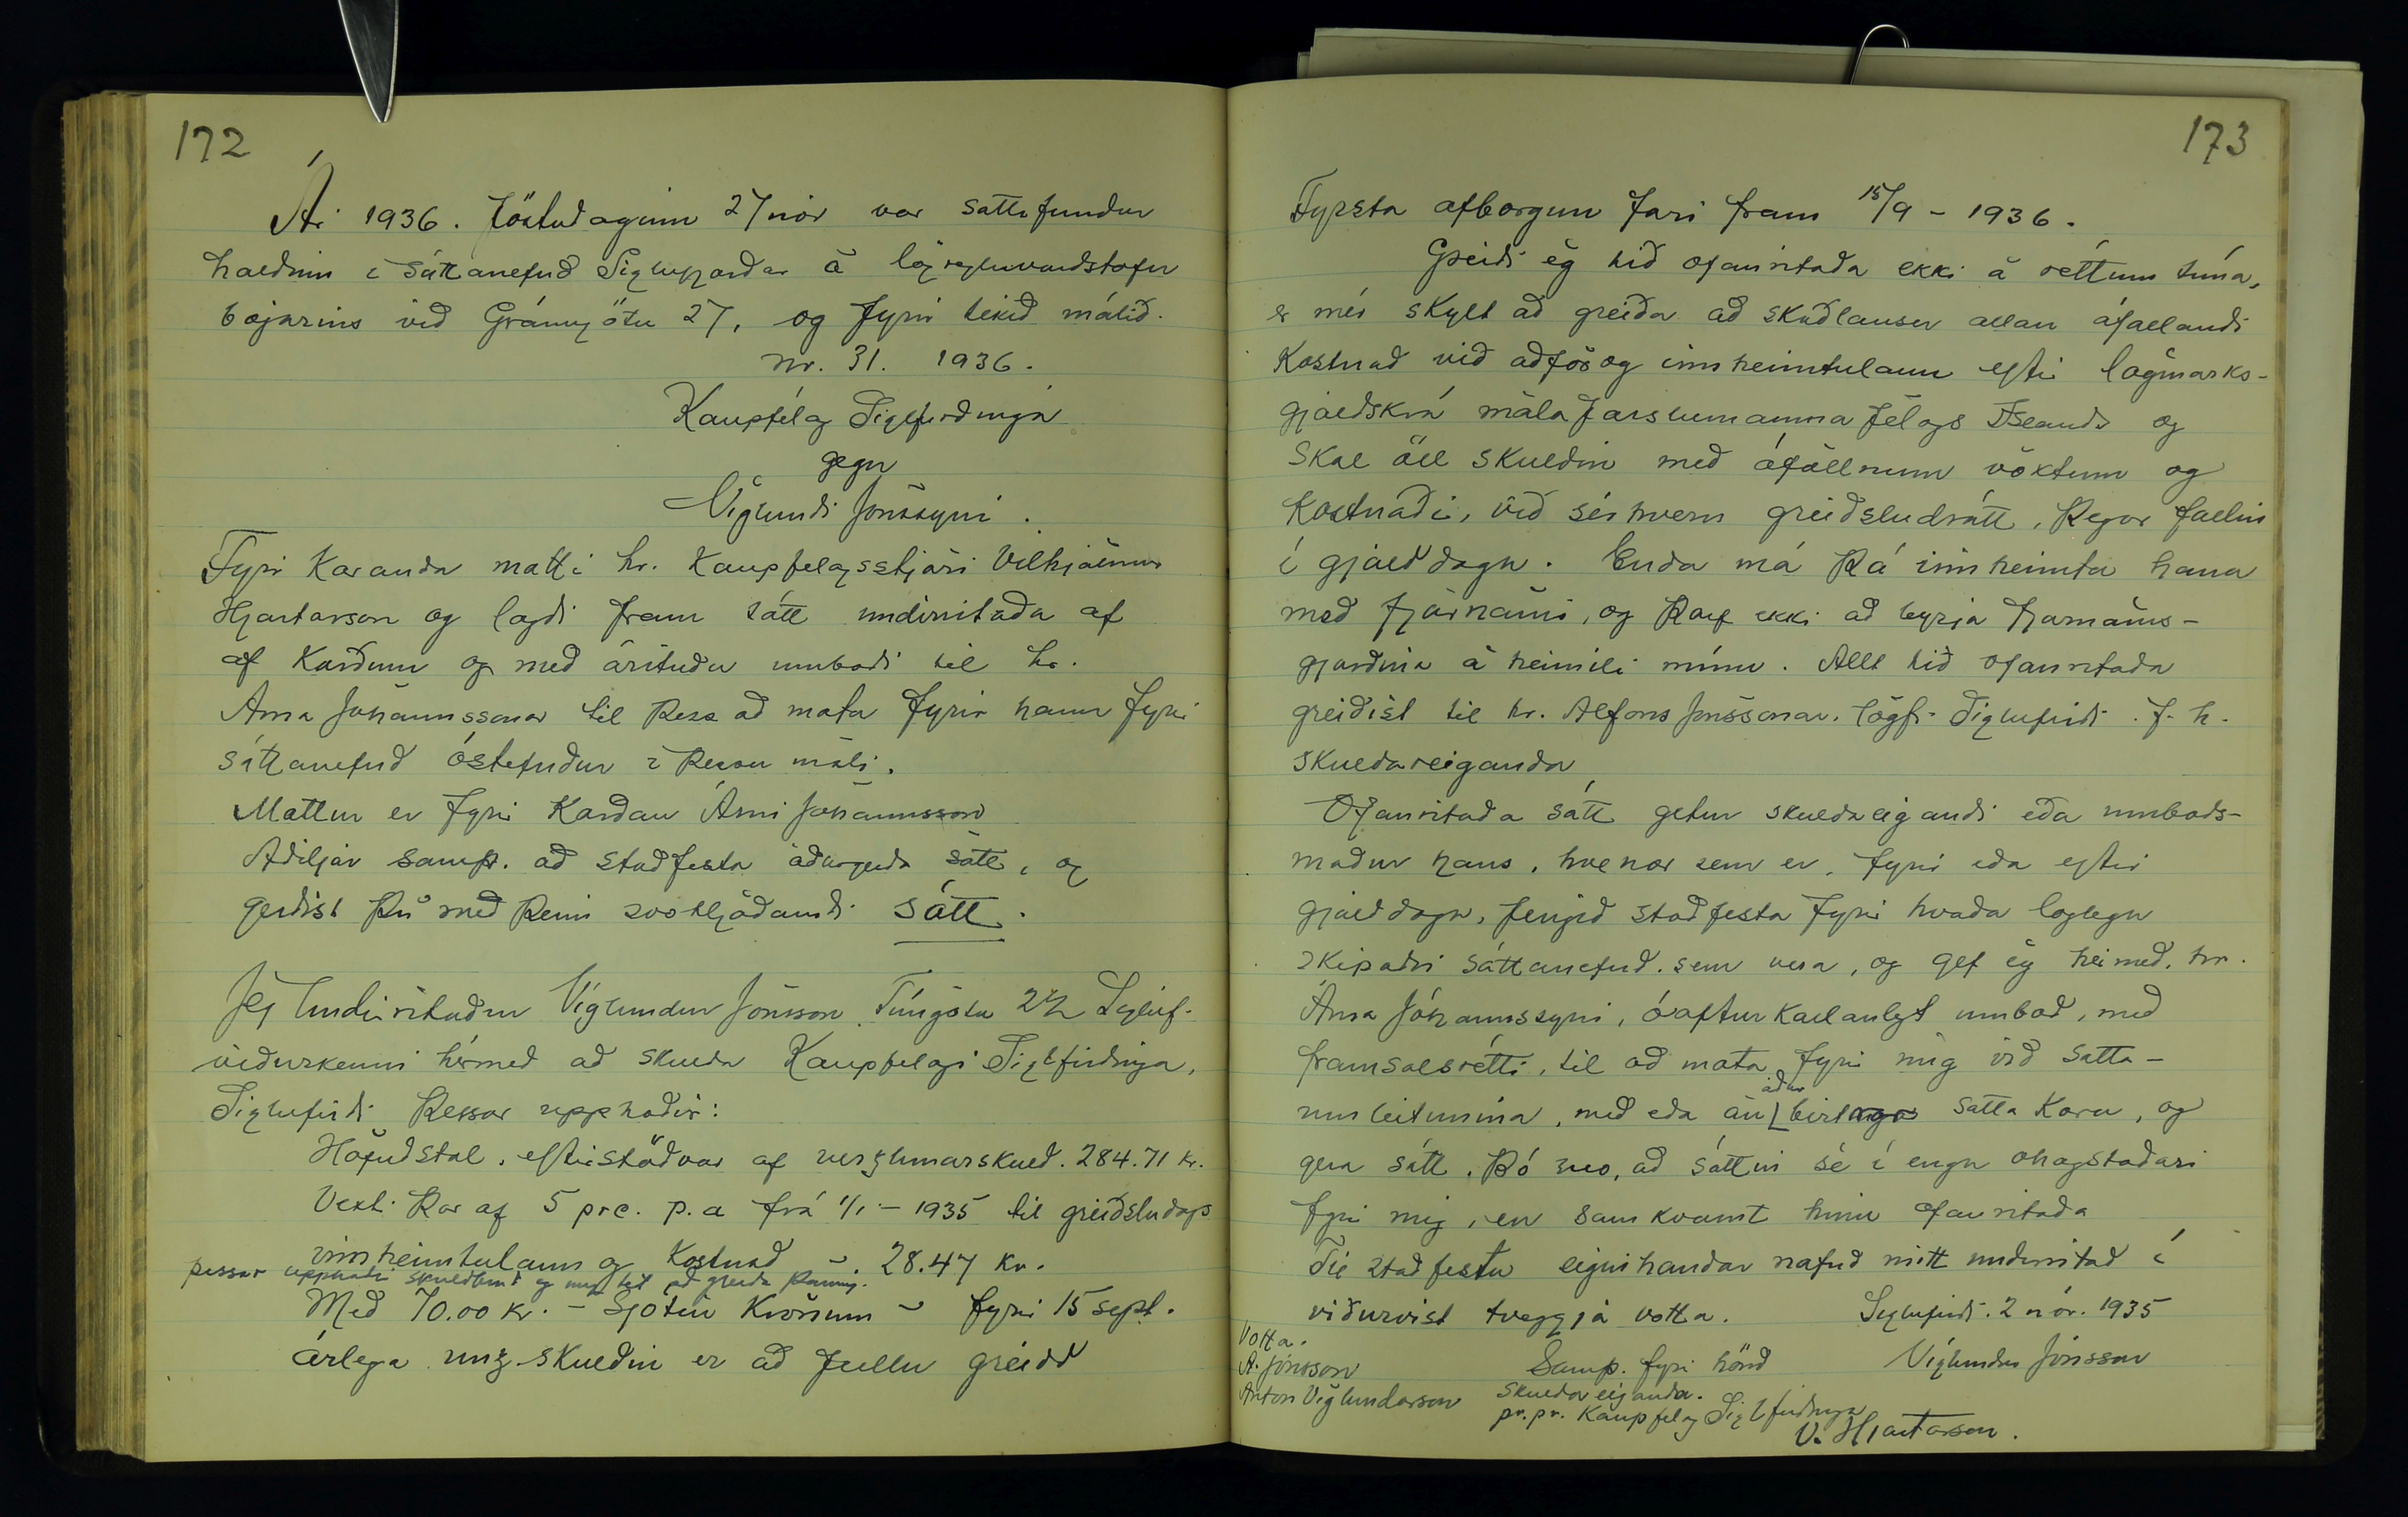 172
Ár 1936. föstudaginn 27 nóv var sáttafundur
haldinn í sáttanefnd Siglufjarðar á lögregluvarðstofu
bæjarins við Gránugötu 27, og fyrir tekið málið.
Nr. 31. 1936.
Kaupfélag Siglfirðinga
gegn
Víglundi Jónssyni.
Fyrir Kæranda mætti hr. Kaupfélagsstjóri Vilhjálmur
Hjartarson og lagði fram sátt undirritaða af
af Kærðum og með árituðu umboði til hr.
Árna Jóhannssonar til þess að mæta fyrir hann fyrir
sáttanefnd óstefndur í þessu máli.
Mættur er fyrir Kærðan Árni Jóhannsson
Aðiljar samþ. að staðfesta áðurgerða sátt, og
gerðist þú með þeim svohljóðandi sátt.
Jeg Undirritaður Víglundur Jónsson Túngötu Sigluf.
viðurkenni hérmeð að skulda Kaupfélagi Siglfirðinga,
Siglufirði þessar upphæðir:
Höfuðstal, eftirstöðvar af verzlunarskuld. 284.71 kr.
Vexti þar af 5 prc. p.a frá 1/1 - 1935 til greiðsludags
innheimtulaun og Kostnað - . 28.47 kr.
þessar upphæðir skuldbind eg mig til að greiða þannig.
Með 70.00 kr. - Sjötíu Krónum - fyrir 15 sept.
árlega unz skuldin er að fullu greidd
173
Fyrsta afborgun fari fram 15/9 - 1936.
Greiði ég hið ofanritaða ekki á réttum tíma,
er mér skylt að greiða að skaðlausu allan áfallandi
Kostnað við aðför og innheimtulaun eftir lágmarks-
gjaldskrá málaflarslumannafélags Íslands og
skal öll skuldin með áföllnum vöxtum og
Kostnaði, við sérhvern greiðsludrátt, þegar fallin
í gjalddaga. Enda má þá innheimta hana
með fjárnámi, og þarf ekki að byrja fjárnáms-
gjörðina á heimili mínu. Allt hið ofanritaða
greiðist til hr. Alfons Jónssonar. lögfr. Siglufirði f. h.
skuldareiganda
Ofanritaða sátt getur skuldareigandi eða umboðs-
maður hans, hvenær sem er, fyrir eða eftir
gjalddaga, fengið staðfesta fyrir hvaða löglega
skipaðri sáttanefnd. sem vera, og gef ég heimed. hr.
Árna Jóhannssyni, óafturkallanlegt umboð, með
framsalsrétti, til að mæta fyrir mig við sátta-
umleitunina, með eða án áður birtrar sátta Kæru, og
gera sátt. Þó svo, að sáttin sé í engu óhagstæðari
fyrir mig, en samkvæmt hinu ofanritaða
Til staðfestu eiginhandar nafnð mitt undirritað í
viðurvist tveggja votta. Siglufirði. 2 nóv. 1935
Víglundur Jónsson
Votta.
A. Jónsson
Anton Víglundarson
Samþ. fyrir hönd
skuldareiganda.
pr.pr. Kaupfélag Siglfirðinga
V. Hjartarson.